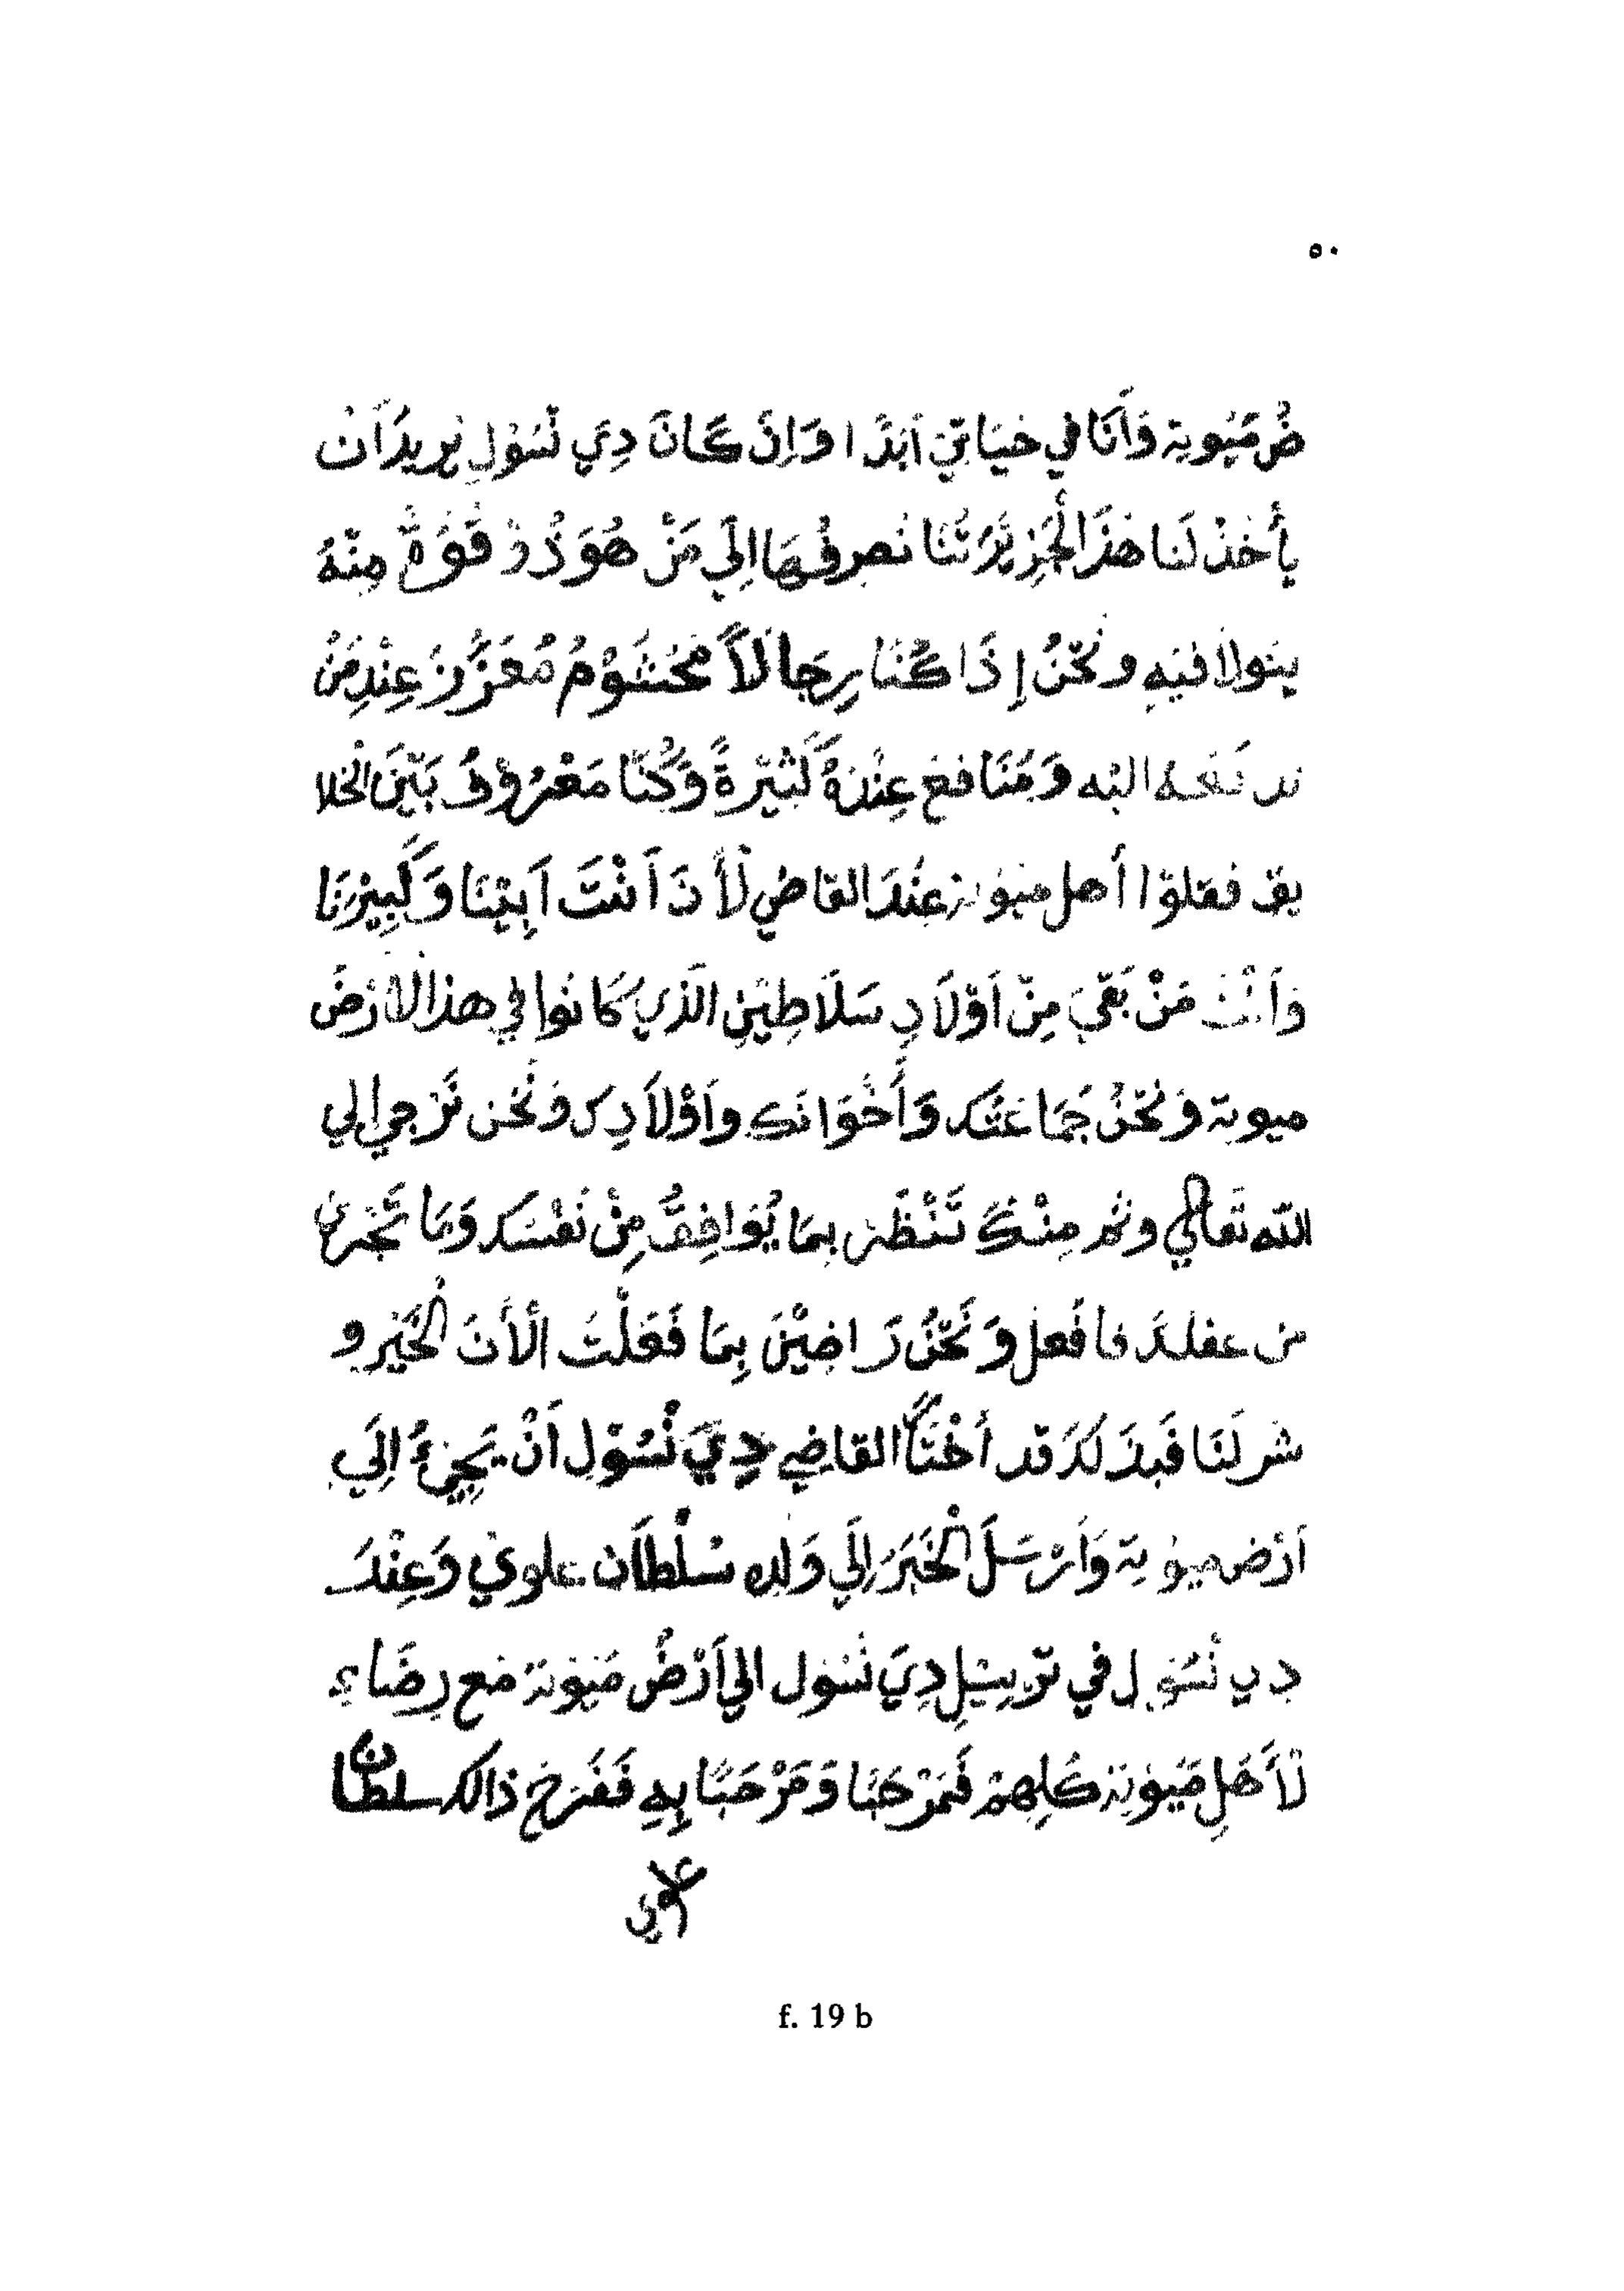 ٥٠
ضُ مَيُوبة وَأَنَا في حَيَاتِي أَبَدًا وَإِنْ كَانَ دِيَ سُوْل يُريدُ اَنْ
يأخذ لَنا هَذَا الْجَزِيْرَتُنَا نُصرفُها إِلَي مَنْ هُوَ ذُوْ قَوْمٌ مِنْهُ
يتولا فيهِ ونَحْنُ إِذَا كُنَّا رِجَالاً مَحْشُوْمُ مُعَزَّزَ عِنْدِ مَنْ
اليْه وَمَنَافع عِنْدَهُ كَثِيْرَةً وَكُنَّا مَعْرُوْفُ بَيْنَ الْخَلا
يق فقلوْا أَهل ميوْبة عِنْدَ القاضي لأَنَ أَنْتَ اَبيْنَا وَكَبِيْرَنَا
وَاَنْتَ مَنْ بَقِيَ مِنْ اَوْلاَدِ سَلَاطِيْنِ الَّذي كَانُوا في هذا الاَرْضُ
ميوبة وَنَحْنُ جَمَاعَتُكَ وَأَخْوَانَكَ وأَوْلاَدِكَ وَنَحْن نَرْجي إلي
الله تَعَالي وثم مِنْكَ تَنْظَرْ بِمَا يُوَافِقُ مِنْ نَفْسَكَ وَمَا تَجْرِي
من عقلكَ فافعل وَنَحْنُ رَاضِيْنَ بِمَا فَعَلْتَ الْأَنَ الْخَيْر و
شر لَنَا فَبِذَلكَ قد أَخْتَاً القاضِي دِيَ سُوْل اَنْ يَجِيْءُ اِلَي
اَرْض ميوْبة وَاَرْسَلَ الْخَبَرَ اِلَي وَلَدِهِ سُلْطَان علوي وَعِنْدَ
دِي سُوْل في تَرْسِيْلِ دِيَ سُوْل الي اَرْضُ مَيوْبة مَع رِضَاءِ
لأَهْلِ مَيوْبة كُلِهِمْ فَمَرْحَبًا وَمَرْحَبًا بِهِ فَفَرَحَ ذالك سلطان
علوي
f. 19 b